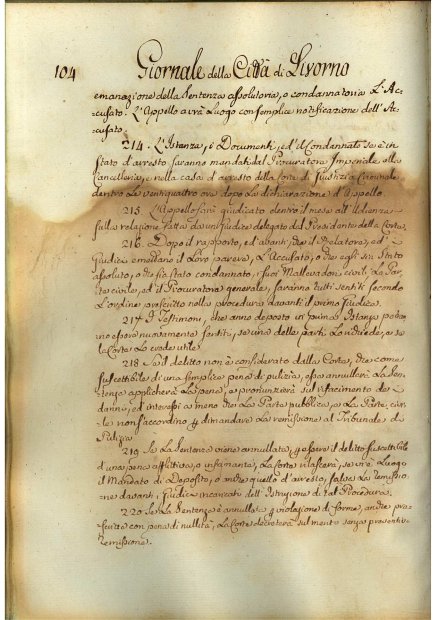 104 Giornale della Città di Livorno
emanazione della Sentenza assolutoria, o condannatoria L'Ac-
cusato. L'Appello avrà Luogo con semplice notificazione dell'Ac-
cusato.
214. L'Istanza, i Documenti, ed il Condannato se è in
Stato d'arresto saranno mandati dal Procuratore Imperiale alla
Cancelleria, e nella casa di arresto della Corte di Giustizia Criminale
dentro Le ventiquattro ore dopo La dichiarazione d'Appello.
215. L'Appello sarà giudicato dentro il mese all'Udienza
sulla relazione fatta da un Giudice delegato dal Presidente della Corte.
216. Dopo il rapporto, ed avanti, che il Relatore, ed i
Giudici emettano il Loro parere, L'Accusato, o che egli sia stato
assoluto, o che sia stato condannato, i suoi Mallevadori civili La Par-
te civile, ed il Procuratore generale, saranno tutti sentiti secondo
L'ordine prescritto nella procedura davanti il primo Giudice.
217. I Testimoni, che anno deposto in prima Istanza potran-
no essere nuovamente sentiti, se una delle parti Lo richiede, o se
la Corte Lo crede utile.
218. Se il delitto non è considerato dalla Corte, che come
suscettibile di una semplice pena di pulizia, essa annullerà La Sen-
tenza applicherà La pena, e pronunzierà sul rifacimento dei
danni, ed interessi a meno che La Parte pubblica, o La Parte civi-
le non facciano dimandare La remissione al Tribunale di
Pulizia.
219. Se La Sentenza viene annullata, essere il delitto suscettibile
d'una pena afflittiva, o infamante, La Corte rilascerà, se vi è Luogo
il Mandato di Deposito, o anche quello d'arresto, salva La remissio-
ne davanti i Giudici incaricati dell'Istruzione di tal Procedura.
220. Se La Sentenza è annullata violazione di forme, anche pre-
scritte con pena di nullità, La Corte decreterà sul merito senza
remissione.